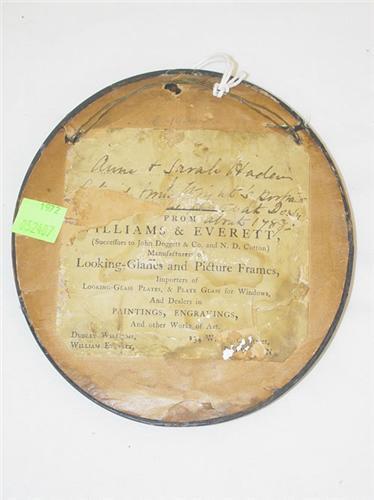 1972
052407
Anne & Sarah Haden
about 1789
FROM
WILLIAMS & EVERETT,
(Successors to John Doggett & Co. and N. D. Cotton)
Manufacturer
Looking-Glasses and Picture Frames,
Importers of
LOOKING-GLASS PLATES, & PLATE GLASS for WINDOWS,
And Dealers in
PAINTINGS, ENGRAVINGS,
And other Works of Art.
DUDLEY WILLIAMS, 234 W
WILLIAM EVERETT, N